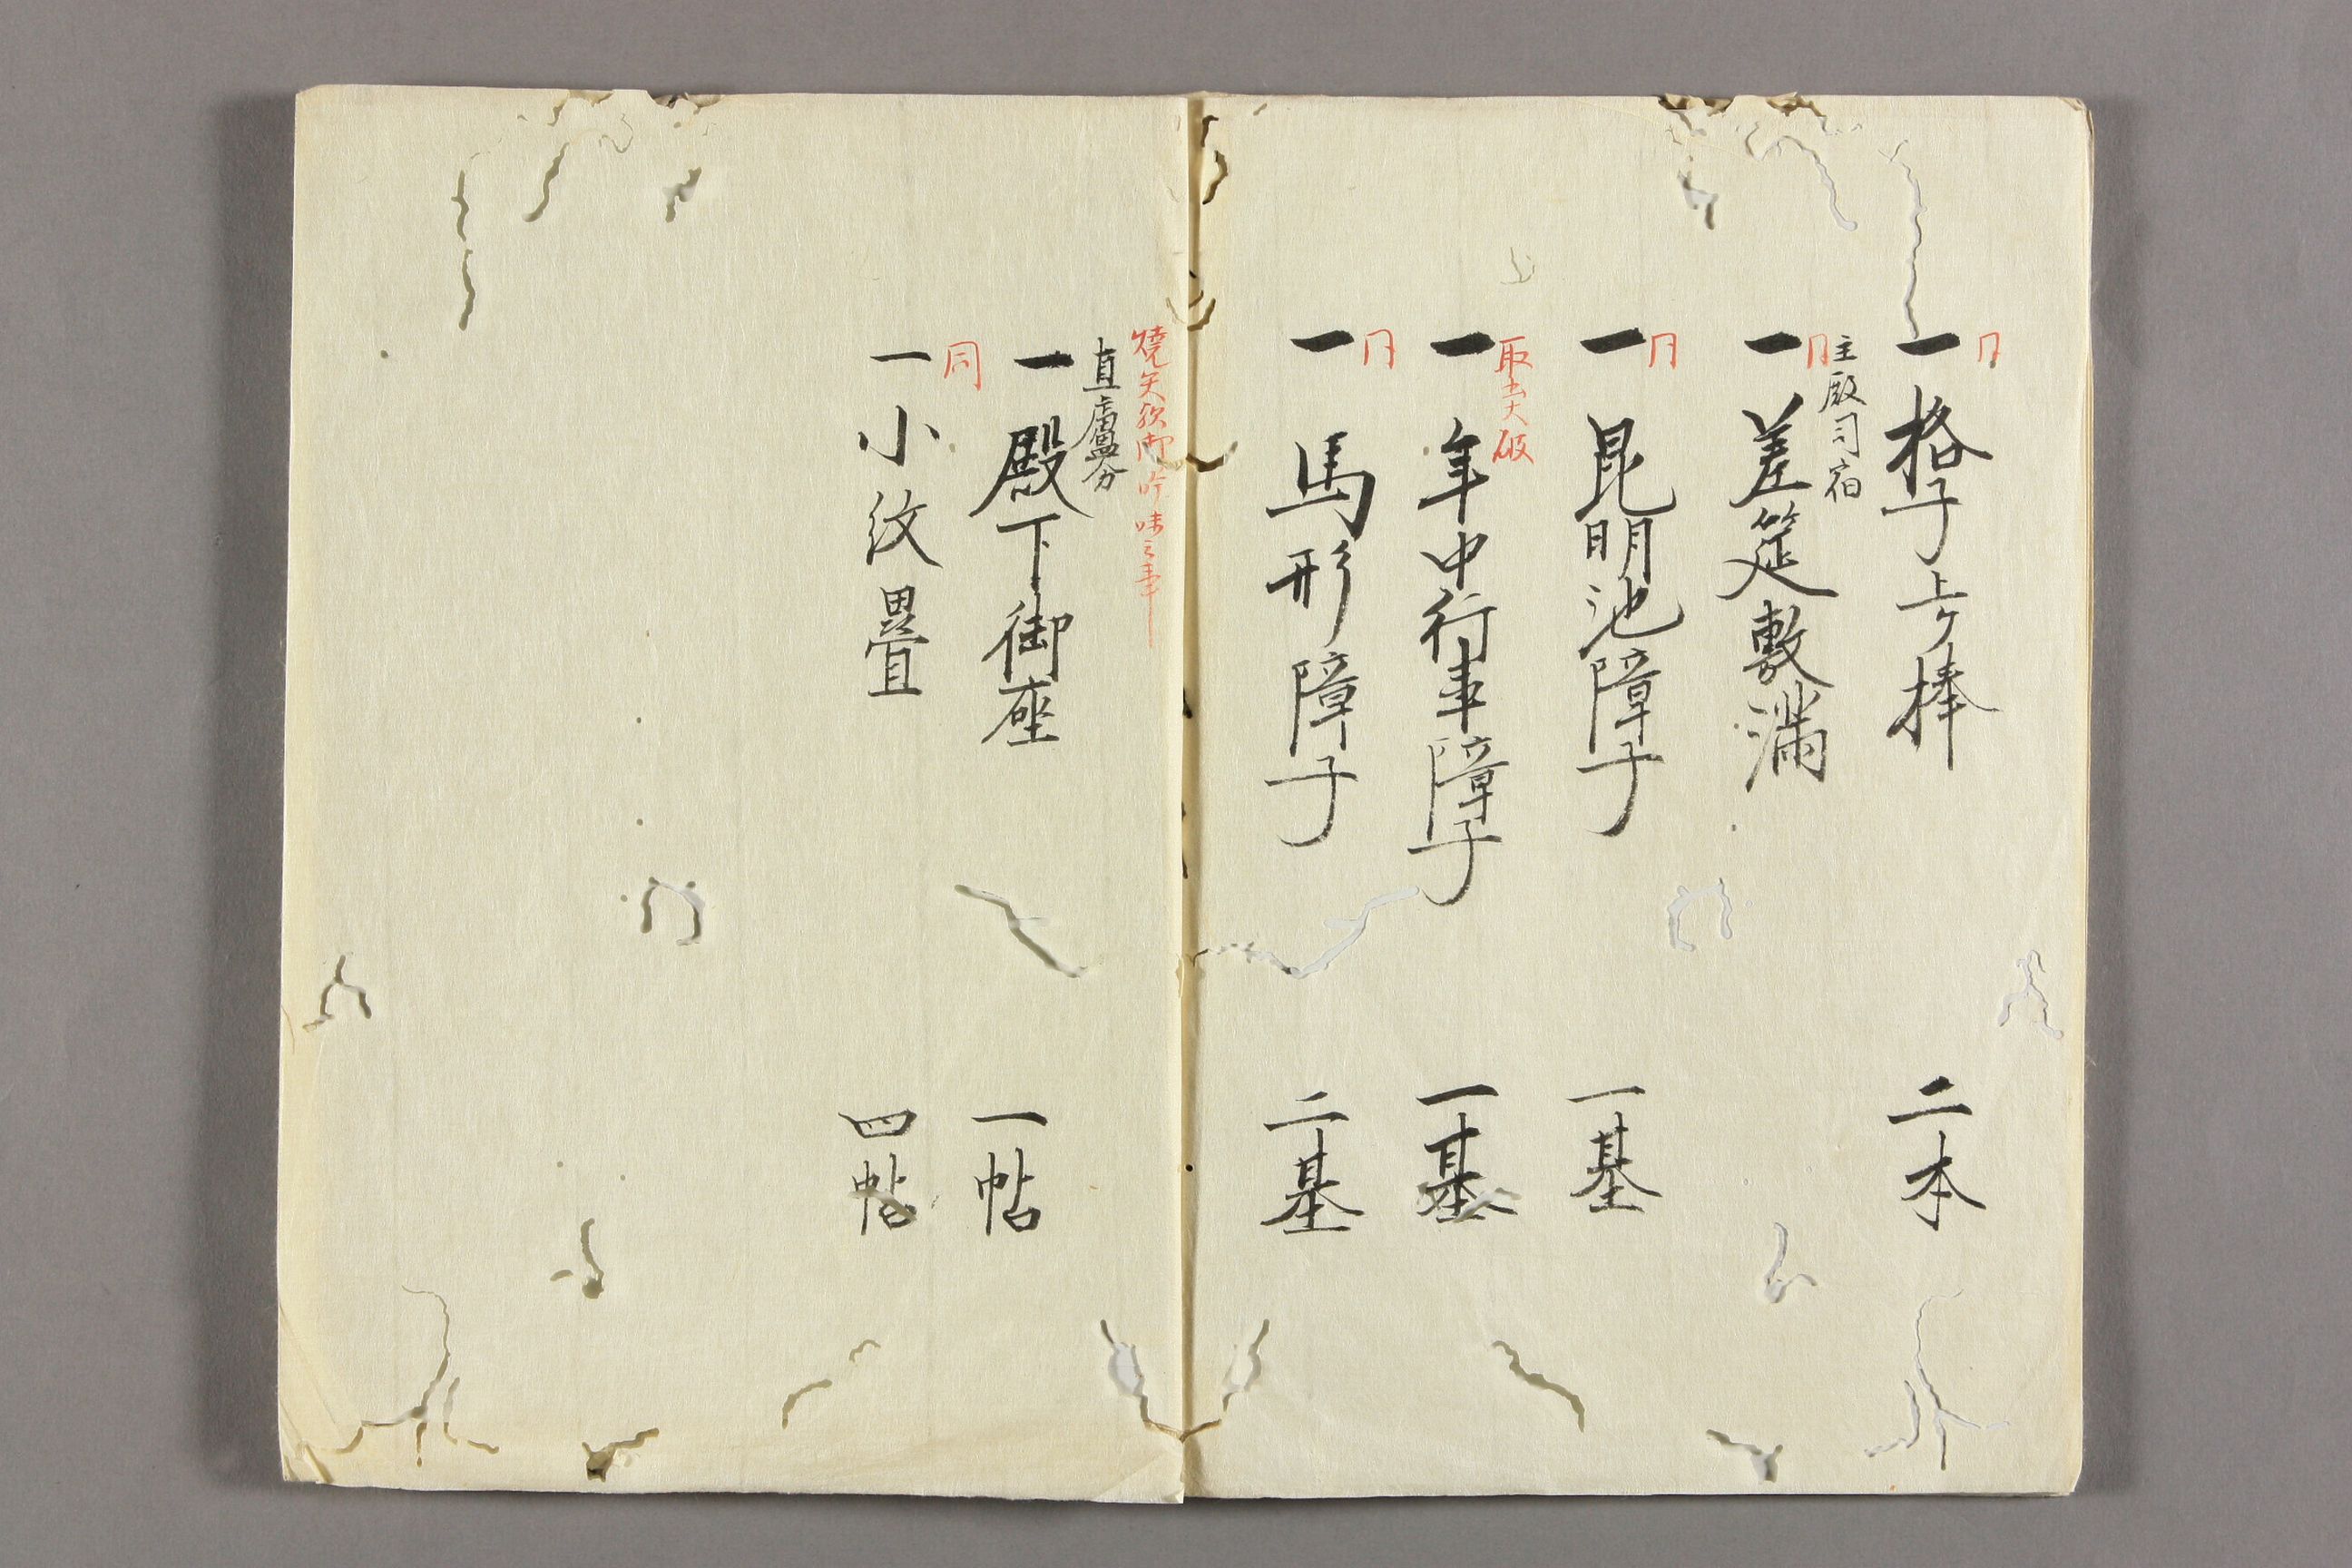 一格子上ケ棒　二本
主殿司宿
一差筵敷満
一昆明池障子　一基
取出大破
一年中行事障子　一基
一馬形障子　二基
焼失歟御吟味之事
直廬分
一殿下御座　一帖
同
一小紋畳　四帖